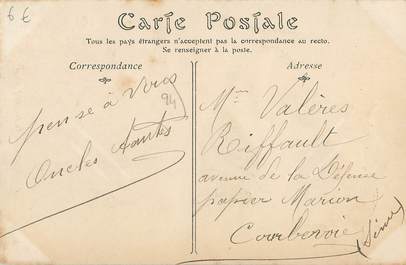 6 €
Carte Postale
Tous les pays étrangers n'acceptent pas la correspondance au recto.
Se renseigner à la poste.
Correspondance
Adresse
pense à Vous
94
Oncles tantes
Mme Valères
Riffault
avenue de la Défense
papier Marion
Courbevoie
(Seine)